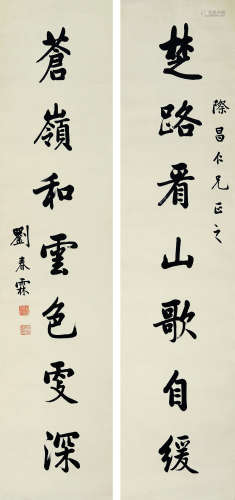 際昌仁兄正之
楚路看山歌自緩
蒼嶺和雲色雯深
劉春霖